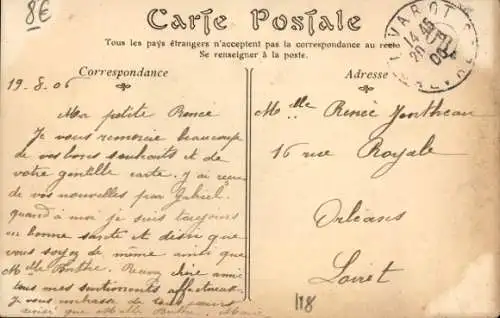 8€
Carte Postale
Tous les pays étrangers n'acceptent pas la correspondance au recto
Se renseigner à la poste.
Correspondance
Adresse
19.8.06
Ma petite Renée
Je vous remercie beaucoup
de vos bons souhaits et de
votre gentille carte. J'ai reçu
de vos nouvelles par Gabriel.
quand à moi je suis toujours
en bonne santé et désire que
vous soyez de même ainsi que
Mlle Berthe. Recevez chère amie
tous mes sentiments affectueux.
Je vous embrasse de tout cœur
ainsi que Mlle Berthe. Marie
Mlle Renée
16 rue Royale
Orléans
Loiret
118
VAROT
14 45
20 8
06